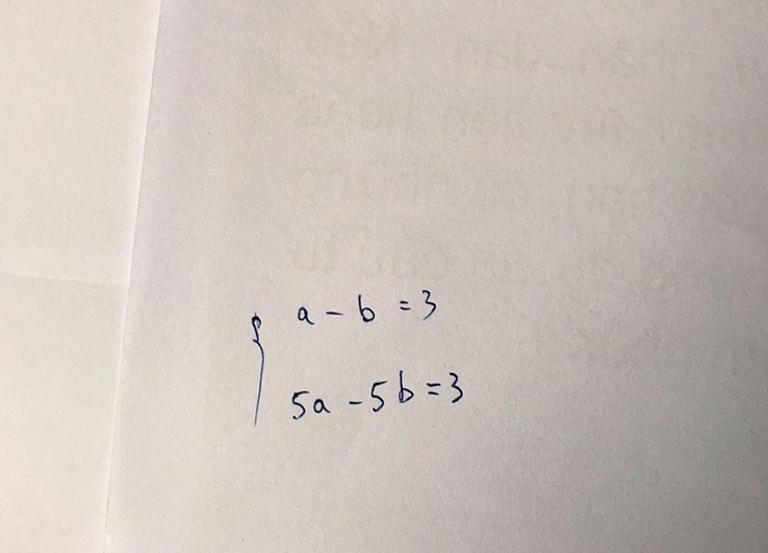 a - b = 3
5a - 5b = 3